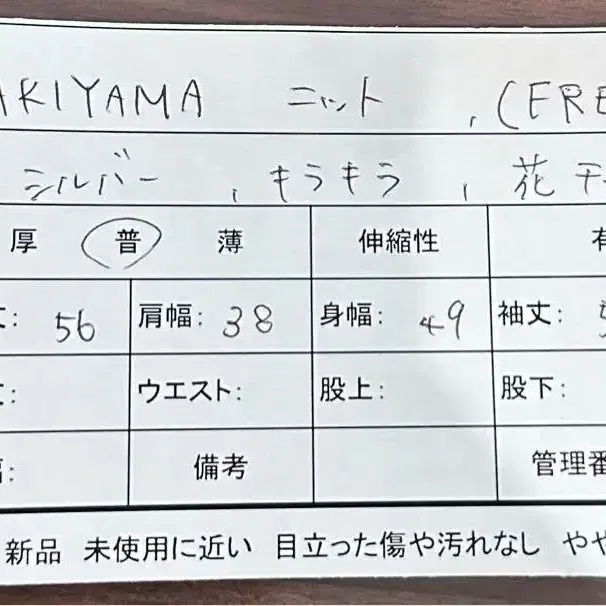 AKIYAMA ニット , CERE
シルバー , キラキラ , 花
厚 普 薄 伸縮性 有
丈: 56 肩幅: 38 身幅: 49 袖丈: 5
丈: ウエスト: 股上: 股下:
幅: 備考 管理番
新品 未使用に近い 目立った傷や汚れなし やや